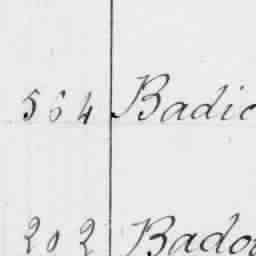 564 Badie
202 Bado